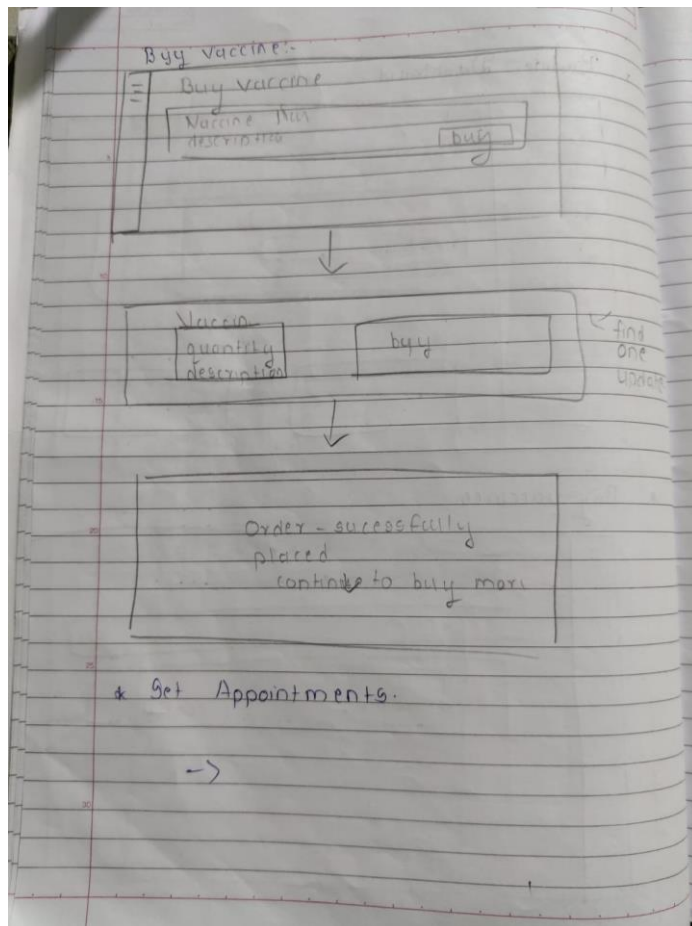 Buy Vaccine:-
Buy Vaccine
Vaccine
description
buy
Vaccin
quantity
description
buy
find
one
update
Order - sucessfully
placed
continue to buy more
* Set Appointments.
->